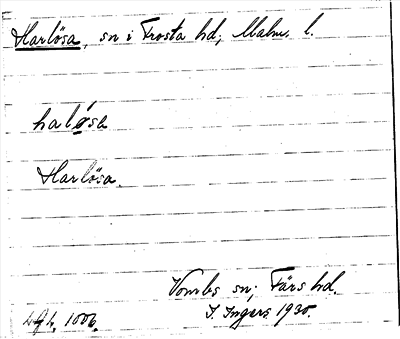 Harlösa, sn i Frosta hd, Malm. l.
halǿsa
Harlösa.
Vombs sn; Färs hd.
I. Ingers 1930.